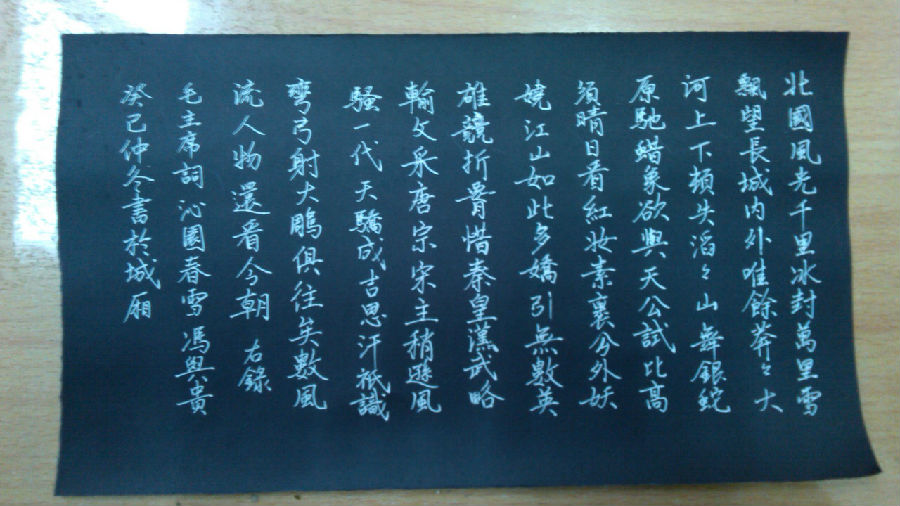 北國風光千里冰封萬里雪
飄望長城內外唯餘莽々大
河上下頓失滔々山舞銀蛇
原馳蜡象欲與天公試比高
須晴日看紅妝素裹分外妖
嬈江山如此多嬌引無數英
雄競折腰惜秦皇漢武略
輸文采唐宗宋主稍遜風
騷一代天驕成吉思汗祗識
彎弓射大鵰俱往矣數風
流人物還看今朝 右錄
毛主席詞沁園春雪馮興貴
癸巳仲冬書於城廂